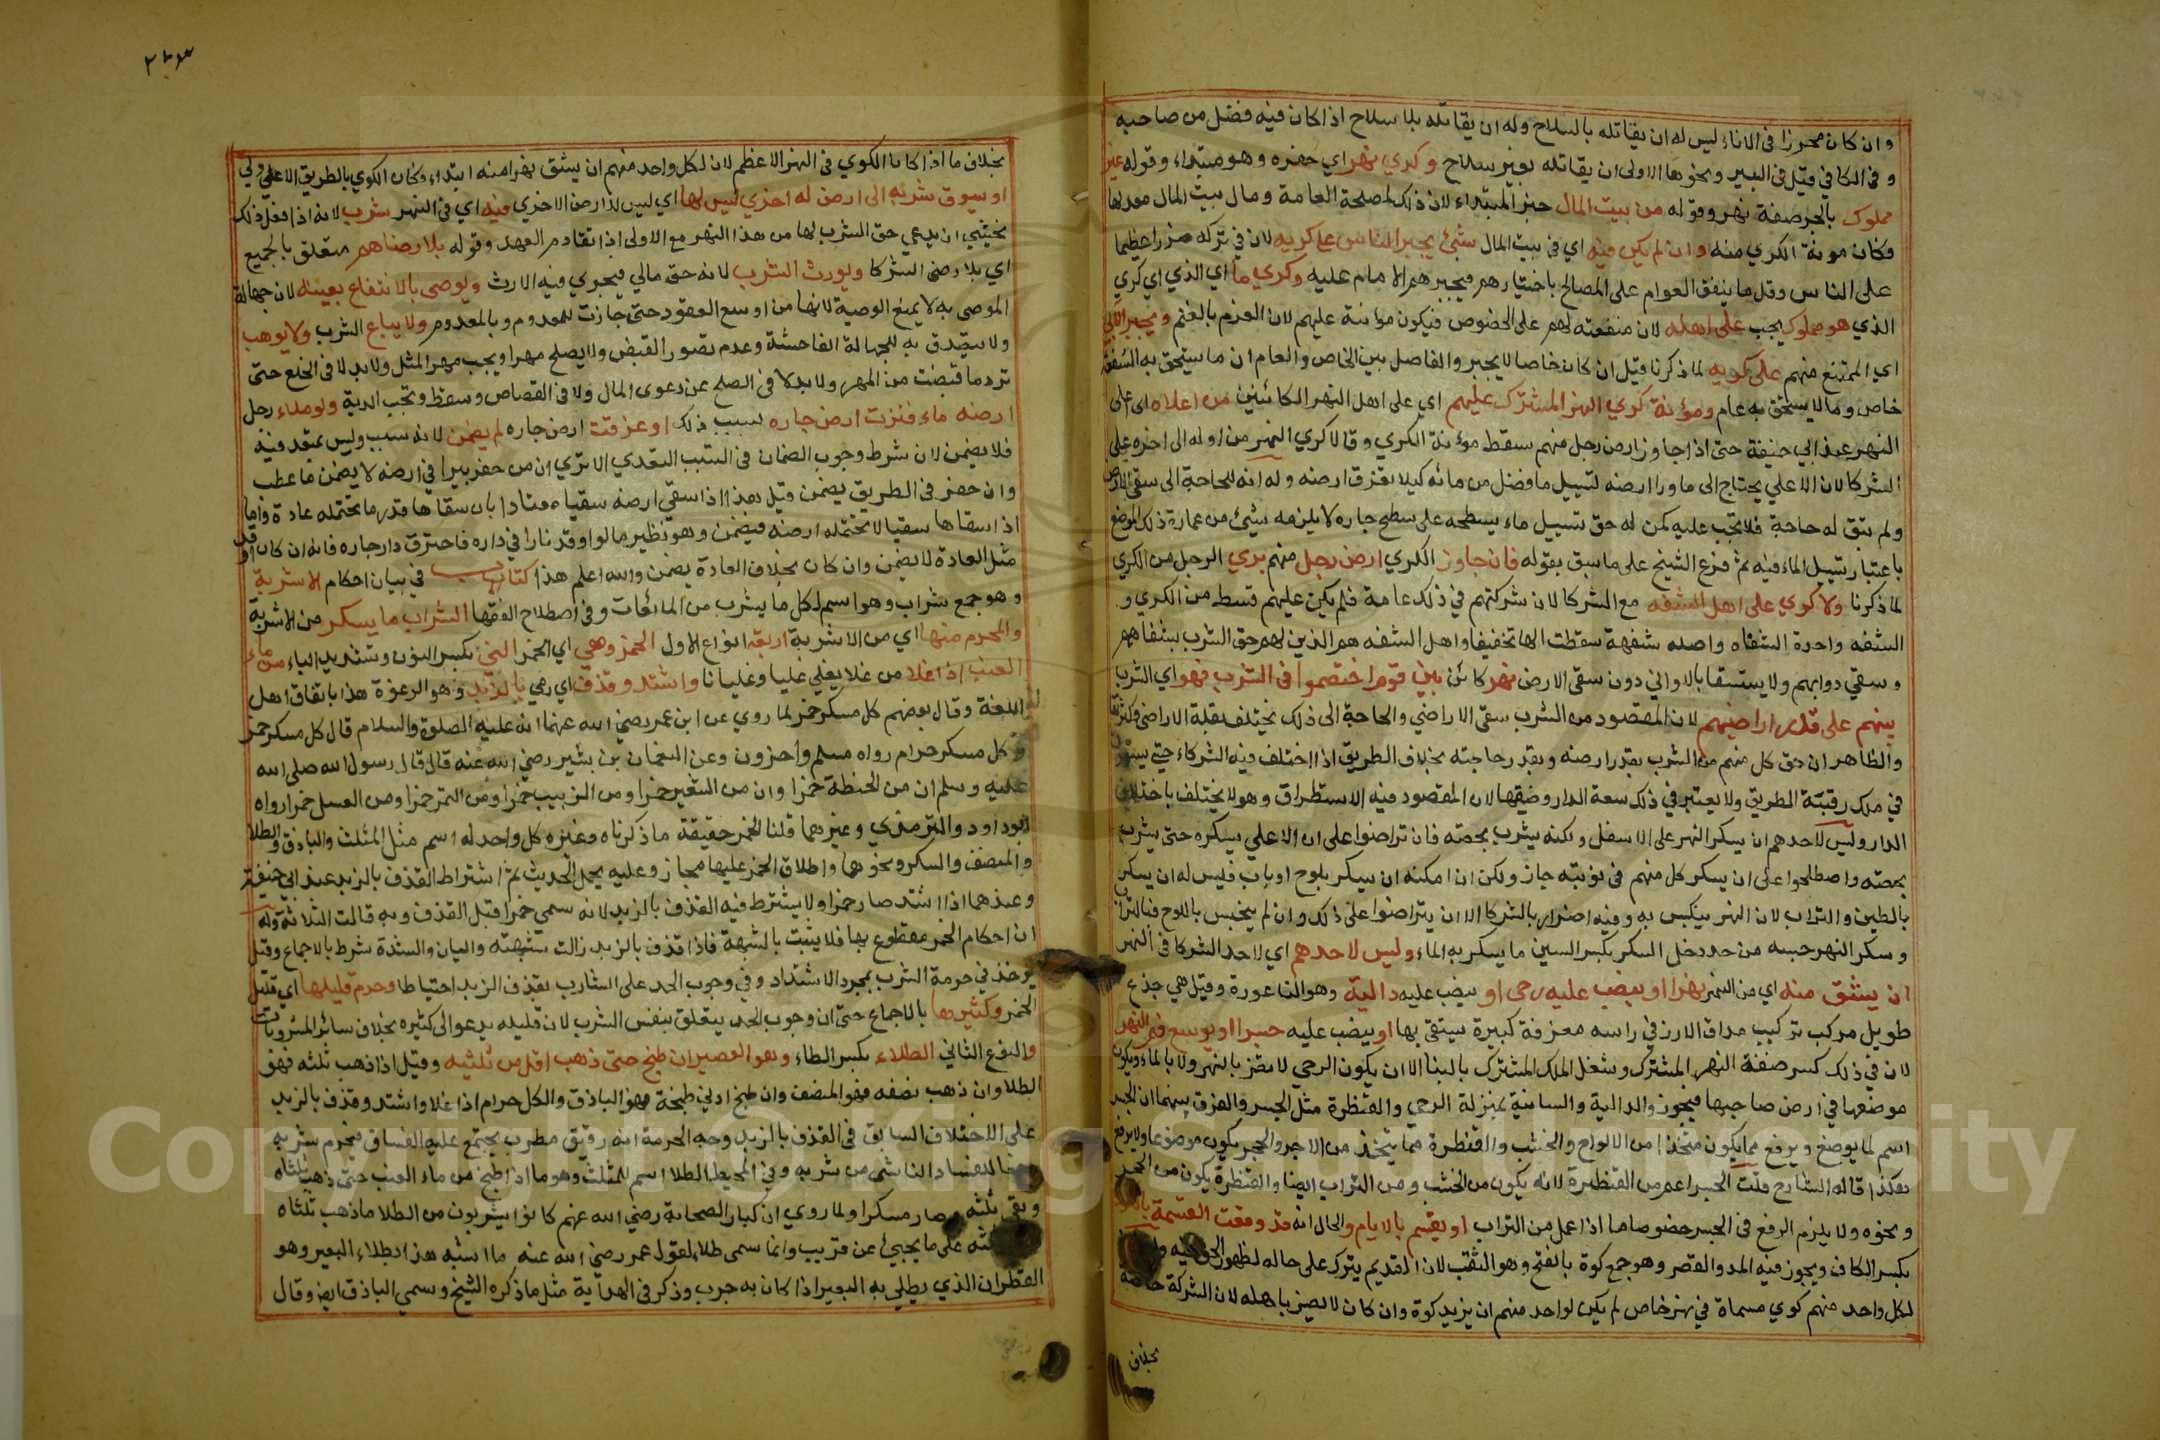 وان كان محرزا فى الاناء ليس له ان يقاتله بالسلاح وله ان يقاتله بلا سلاح اذا كان فيه فضل من صاحبه
و فى الكافي قيل فى البير ونحوها الاولى ان يقاتله بغير سلاح وكري نهر اي حفره وهو مبتداء وقوله غير
مملوك بالجر صفة نهر وقوله من بيت المال خبر المبتداء لان ذلك لمصلحة العامة ومال بيت المال معد لها
فكان مونة الكري منه وان لم يكن فيه اي في بيت المال شئ يجبر الناس على كريه لان في تركه ضررا عظيما
على الناس وقل ما ينفق العوام على المصالح باختيارهم فيجبرهم الامام عليه وكري ما اي الذي اي كري
الذي هو مملوك يجب على اهله لان منفعته لهم على الخصوص فيكون مؤنته عليهم لان الغرم بالغنم ويجبر الابي
اي الممتنع منهم على كريه لما ذكرنا قيل ان كان خاصا لا يجبر والفاصل بين الخاص والعام ان ما يستحق به الشفعة
خاص وما لا يستحق به عام ومؤنة كري النهر المشترك عليهم اي على اهل النهر الكائنين من اعلاه اى اعلى
النهر عند ابي حنيفة حتى اذا جاوز ارض رجل منهم سقط مؤنة الكري وقالا كري النهر من اوله الى اخره على
الشركا لان الاعلي يحتاج الى ما ورا ارضه لتسييل ما فضل من مائه كيلا يغرق ارضه وله انه للحاجة الى سقى الارض
ولم يبق له حاجة فلا تجب عليه كمن له حق تسييل ماء سطحه على سطح جاره لا يلزمه شئ من عمارة ذلك الموضع
باعتبار تسييل الماء فيه ثم فرع الشيخ على ما سبق بقوله فان جاوز الكري ارض رجل منهم بري الرجل من الكري
لما ذكرنا ولا كري على اهل الشفه مع الشركا لان شركتهم في ذلك عامة فلم يكن عليهم قسط من الكري و
الشفه واحدة الشفاه واصله شفهة سقطت الها تخفيفا واهل الشفه هم الذين لهم حق الشرب بشفاههم
وسقي دوابهم ولا يستسقا بالاواني دون سقى الارض نهر كائن بين قوم اختصموا فى الشرب فهو اي الشرب
بينهم على قدر اراضيهم لان المقصود من الشرب سقى الاراضي والحاجة الى ذلك تختلف بقلة الاراضى وكثرتها
والظاهر ان حق كل منهم من الشرب بقدر ارضه وبقدر حاجته بخلاف الطريق اذا اختلف فيه الشركاء حيث يستوون
في ملك رقبة الطريق ولا يعتبر في ذلك سعة الدار وضيقها لان المقصود فيه الاستطراق وهو لا يختلف باختلاف
الدار وليس لاحدهم ان يسكر النهر على الاسفل ولكنه يشرب بحصته فان تراضوا على ان الاعلي يسكره حتى يشرب
بحصته واصطلحوا على ان يسكر كل منهم فى نوبته جاز ولكن ان امكنه ان يسكر بلوح او باب فليس له ان يسكر
بالطين والتراب لان النهر ينكبس به وفيه اضرار بالشركا الا ان يتراضوا على ذلك وان لم يحبس باللوح فبالتراب
وسكر النهر حبسه من حد دخل السكر بكسر السين ما يسكر به الماء وليس لاحدهم اي لاحد الشركا في النهر
ان يشق منه اي من النهر نهرا او ينصب عليه رحى او ينصب عليه دالية وهو الناعورة وقيل هي جذع
طويل مركب تركيب مداق الارز في راسه مغرفة كبيرة يستقى بها او ينصب عليه جسرا او يوسع فم النهر
لان في ذلك كسر ضفة النهر المشترك وشغل الملك المشترك بالبنا الا ان يكون الرحي لا يضر بالنهر ولا بالماء ويكون
موضعها في ارض صاحبها فيجوز والدالية والسانية بمنزلة الرحي والقنظرة مثل الجسر والفرق بينهما ان الجسر
اسم لما يوضع ويرفع مما يكون متخذا من الالواح والخشب والقنطرة مما يتخذ من الاجر والحجر يكون موضوعا ولا يرفع
هكذا قاله الشارح قلت الجسر اعم من القنظرة لانه يكون من الخشب ومن التراب ايضا والقنظرة يكون من الحجر
ونحوه ولا يلزم الرفع فى الجسر خصوصا ما اذا عمل من التراب او يقسم بالايام والحال انه قد وقعت القسمة
بكسر الكاف ويجوز فيه المد والقصر وهو جمع كوة بالفتح وهو الثقب لان القديم يترك على حاله لظهور الحق فيه
لكل واحد منهم كوي مسماة في نهر خاص لم يكن لواحد منهم ان يزيد كوة وان كان لا يضر باهله لان الشركة خاصة
بخلاف
بخلاف ما اذا كانا الكوي في النهر الاعظم لان لكل واحد منهم ان يشق نهرا منه ابتداء وكان الكوي بالطريق الاعلى
او سوق شربه الى ارض له اخري ليس لها اي ليس لذا رض الاخري فيه اي في النهر شرب لانه اذا فعل ذلك
يخشي ان يدعي حق الشرب لها من هذا النهر مع الاولى اذا تقادم العهد وقوله بلا رضاهم متعلق بالجميع
اي بلا رضى الشركا ويورث الشرب لانه حق مالي فيجري فيه الارث ويوصى بالانتفاع بعينه لان جهالة
الموصى به لا يمنع الوصية لانها من اوسع العقود حتى جازت للمعدوم وبالمعدوم ولا يباع الشرب ولا يوهب
ولا يتصدق به للجهالة الفاحشة وعدم تصور القبض ولا يصلح مهرا ويجب مهر المثل ولا بدلا في الخلع حتى
ترد ما قبضت من المهر ولا بدلا في الصلح عن دعوى المال ولا في القصاص وسقط وتجب الدية ولو ملاء رجل
ارضه ماء فنزت ارض جاره بسبب ذلك او غرقت ارض جاره لم يضمن لانه سبب وليس بمتعد فيه
فلا يضمن لان شرط وجوب الضمان فى السبب التعدي الا تري ان من حفر بيرا في ارضه لا يضمن ما عطب
وان حفر فى الطريق يضمن وقيل هذا اذا سقى ارضه سقيا معتادا بان سقاها قدر ما تحتمله عادة واما
اذا سقاها سقيا لا تحتمله ارضه فيضمن وهو نظير ما لو اوقد نارا في داره فاحترق دار جاره فانه ان كان اوقد
مثل العادة لا يضمن وان كان بخلاف العادة يضمن والله اعلم هذا كتاب في بيان احكام الاشربة
وهو جمع شراب وهو اسم لكل ما يشرب من المائعات وفي اصطلاح الفقها الشراب ما يسكر من الاشربة
والمحرم منها اي من الاشربة اربعة انواع الاول الخمر وهي اي الخمر الني بكسر النون وتشديد الياء من ماء
العنب اذا غلا من غلا يغلي غليا وغليانا واشتد وقذف اي رمي بالزبد وهو الرغوة هذا باتفاق اهل
اللغة وقال بعضهم كل مسكر خمر لما روي عن ابن عمر رضي الله عنهما انه عليه الصلوة والسلام قال كل مسكر خمر
وكل مسكر حرام رواه مسلم واخرون وعن النعمان بن بشير رضي الله عنه قال قال رسول الله صلى الله
عليه وسلم ان من الحنطة خمرا وان من الشعير خمرا ومن الزبيب خمرا ومن التمر خمرا ومن العسل خمرا رواه
ابو داود والترمذي وغيرهما قلنا الخمر حقيقة ما ذكرناه وغيره كل واحد له اسم مثل المثلث والباذق والطلا
والمنصف والسكر ونحوها واطلاق الخمر عليها مجاز وعليه يحمل الحديث ثم اشتراط القذف بالزبد عند ابي حنيفة
وعندهما اذا اشتد صار خمرا ولا يشترط فيه القذف بالزبد لانه سمى خمرا قبل القذف وبه قالت الثلاثة وله
ان احكام الخمر مقطوع بها فلا يثبت بالشبهة فاذا قذف بالزبد زالت شبهته والغليان والشدة شرط بالاجماع وقيل
يوخذ في حرمة الشرب بمجرد الاشتداد وفي وجوب الحد على الشارب بقذف الزبد احتياطا وحرم قليلها اي قليل
الخمر وكثيرها بالاجماع حتى ان وجوب الحد يتعلق بنفس الشرب لان قليله يدعو الى كثيره بخلاف سائر المشروبات
والنوع الثاني الطلاء بكسر الطاء وهو العصير ان طبخ حتى ذهب اقل من ثلثيه وقيل اذا ذهب ثلثه فهو
الطلا وان ذهب نصفه فهو المنصف وان طبخ ادني طبخة فهو الباذق والكل حرام اذا غلا واشتد وقذف بالزبد
على الاختلاف السابق فى القذف بالزبد وجه الحرمة انه رقيق مطرب يجتمع عليه الفساق فيحرم شربه
الفساد الناشى من شربه وفي المحيط الطلا اسم للمثلث وهو ما اذا طبخ من ماء العنب حتى ذهب ثلثاه
وبقي ثلثه وصار مسكرا ولما روي ان كبار الصحابة رضي الله عنهم كانوا يشربون من الطلا ما ذهب ثلثاه
ثلثه على ما يجيئ عن قريب وانما سمى طلا لقول عمر رضى الله عنه ما اشبه هذا بطلاء البعير وهو
القطران الذي يطلي به البعير اذا كان به جرب وذكر في الهداية مثل ما ذكره الشيخ وسمي الباذق ايضا وقال
Copyright © King Saud University